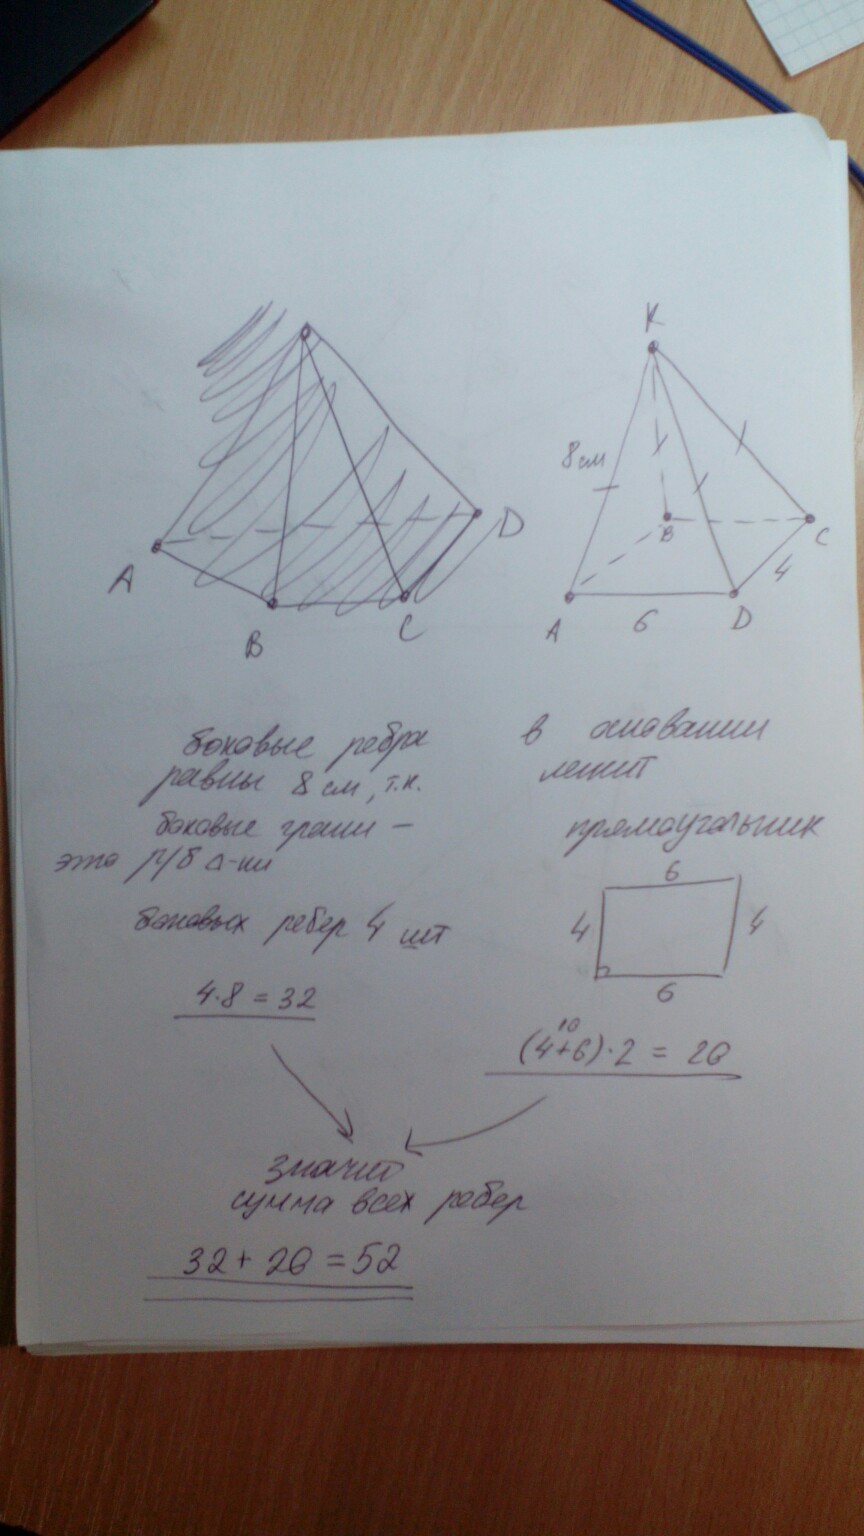 A
B
C
D
K
8 см
B
C
A
D
6
4
боковые ребра
равны 8 см, т.к.
боковые грани –
это р/б Δ-ки
боковых ребер 4 шт
4·8 = 32
в основании
лежит
прямоугольник
6
4
4
6
10
(4+6)·2 = 20
значит
сумма всех ребер
32 + 20 = 52